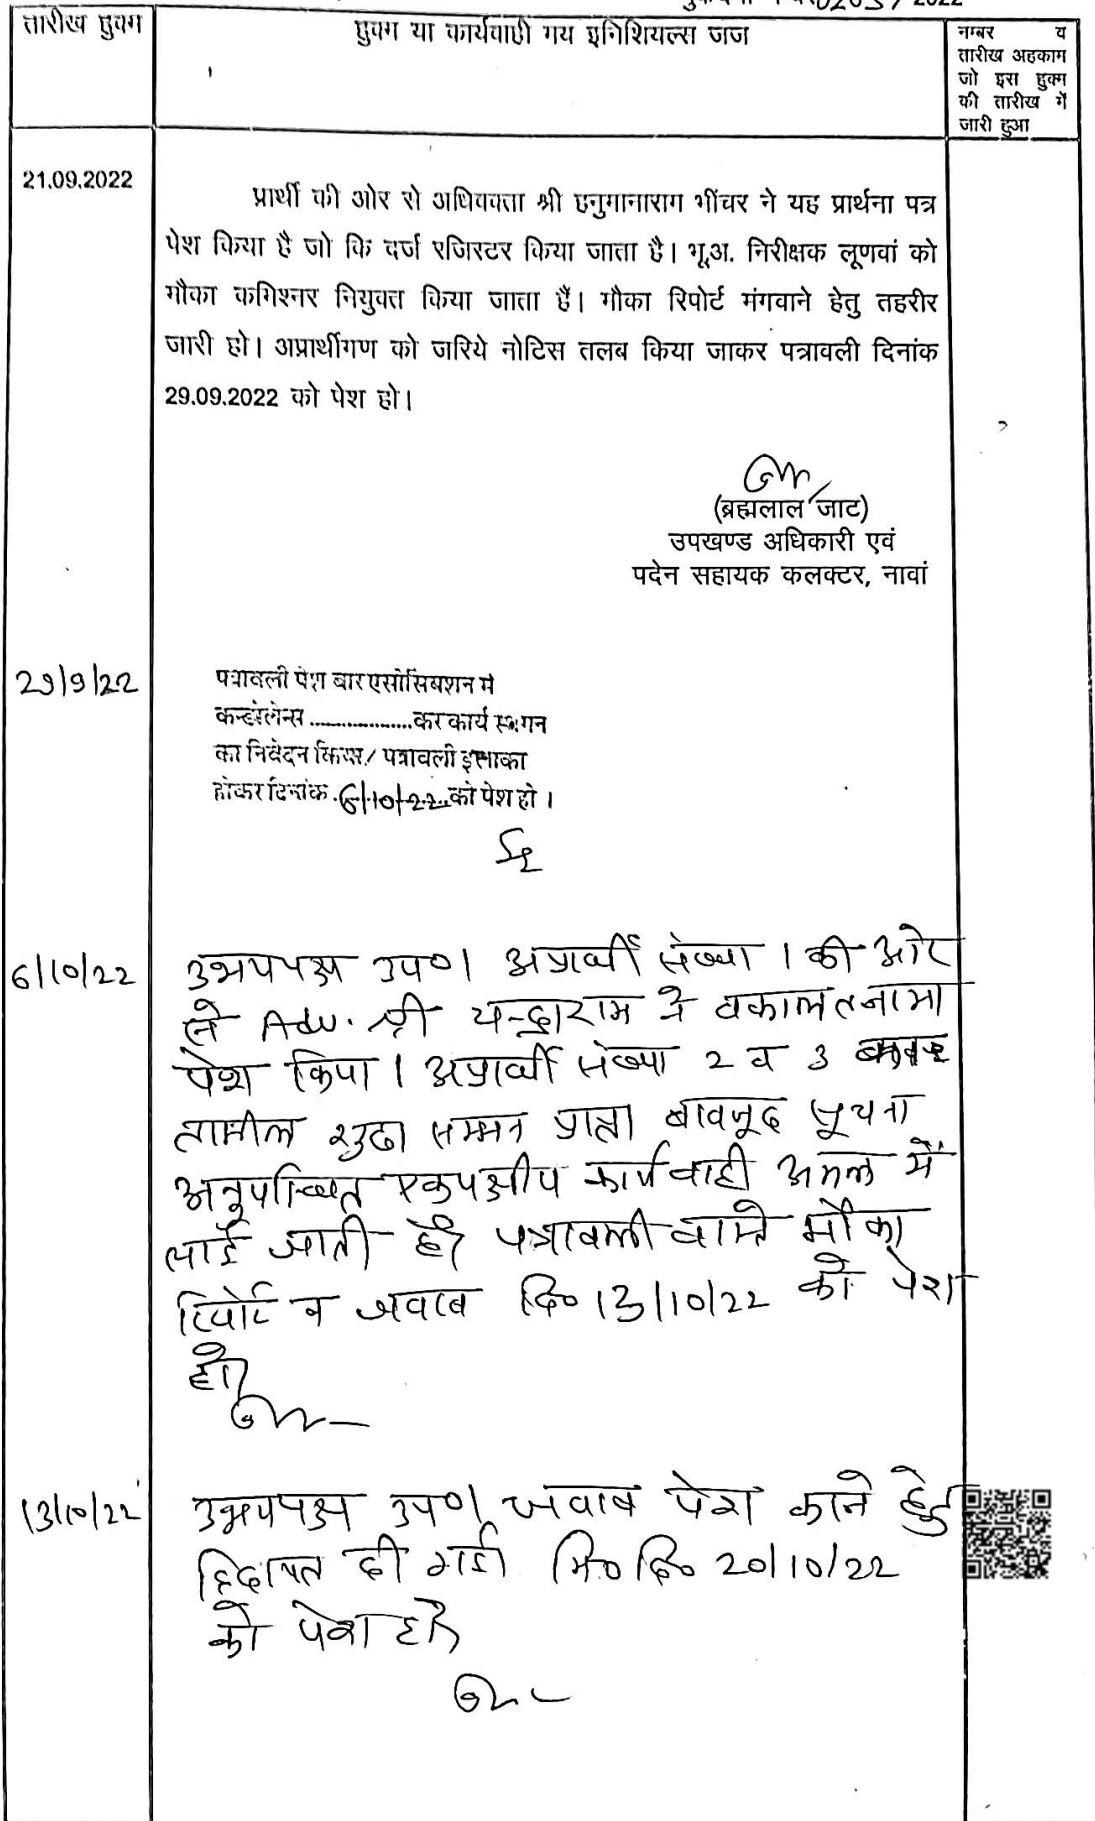 2022
तारीख हुक्म
हुक्म या कार्यवाही मय इनिशियल्स जज
नम्बर व
तारीख अहकाम
जो इस हुक्म
की तारीख में
जारी हुआ
21.09.2022
प्रार्थी की ओर से अधिवक्ता श्री हनुमानाराम भींचर ने यह प्रार्थना पत्र
पेश किया है जो कि दर्ज रजिस्टर किया जाता है। भू.अ. निरीक्षक लूणवां को
मौका कमिश्नर नियुक्त किया जाता हैं। मौका रिपोर्ट मंगवाने हेतु तहरीर
जारी हो। अप्रार्थीगण को जरिये नोटिस तलब किया जाकर पत्रावली दिनांक
29.09.2022 को पेश हो।
(ब्रह्मलाल जाट)
उपखण्ड अधिकारी एवं
पदेन सहायक कलक्टर, नावां
29/9/22
पत्रावली पेश बार एसोसियशन में
कन्डोलेन्स ..................कर कार्य स्थगन
का निवेदन किया/ पत्रावली इसाका
होकर दिनांक 6/10/22 को पेश हो ।
6/10/22
उभयपक्ष उप०। अप्रार्थी संख्या 1 की ओर
से Adv. श्री चन्द्राराम ने वकालतनामा
पेश किया। अप्रार्थी संख्या 2 व 3
तामील शुदा सम्मन प्राप्त बावजूद सूचना
अनुपस्थित एकपक्षीय कार्यवाही अमल में
लाई जाती है। पत्रावली वास्ते मौका
रिपोर्ट व जवाब दि० 13/10/22 को पेश
हो।
13/10/22
उभयपक्ष उप०। जवाब पेश करने हेतु
हिदायत दी गई। मि० दि० 20/10/22
को पेश हो।